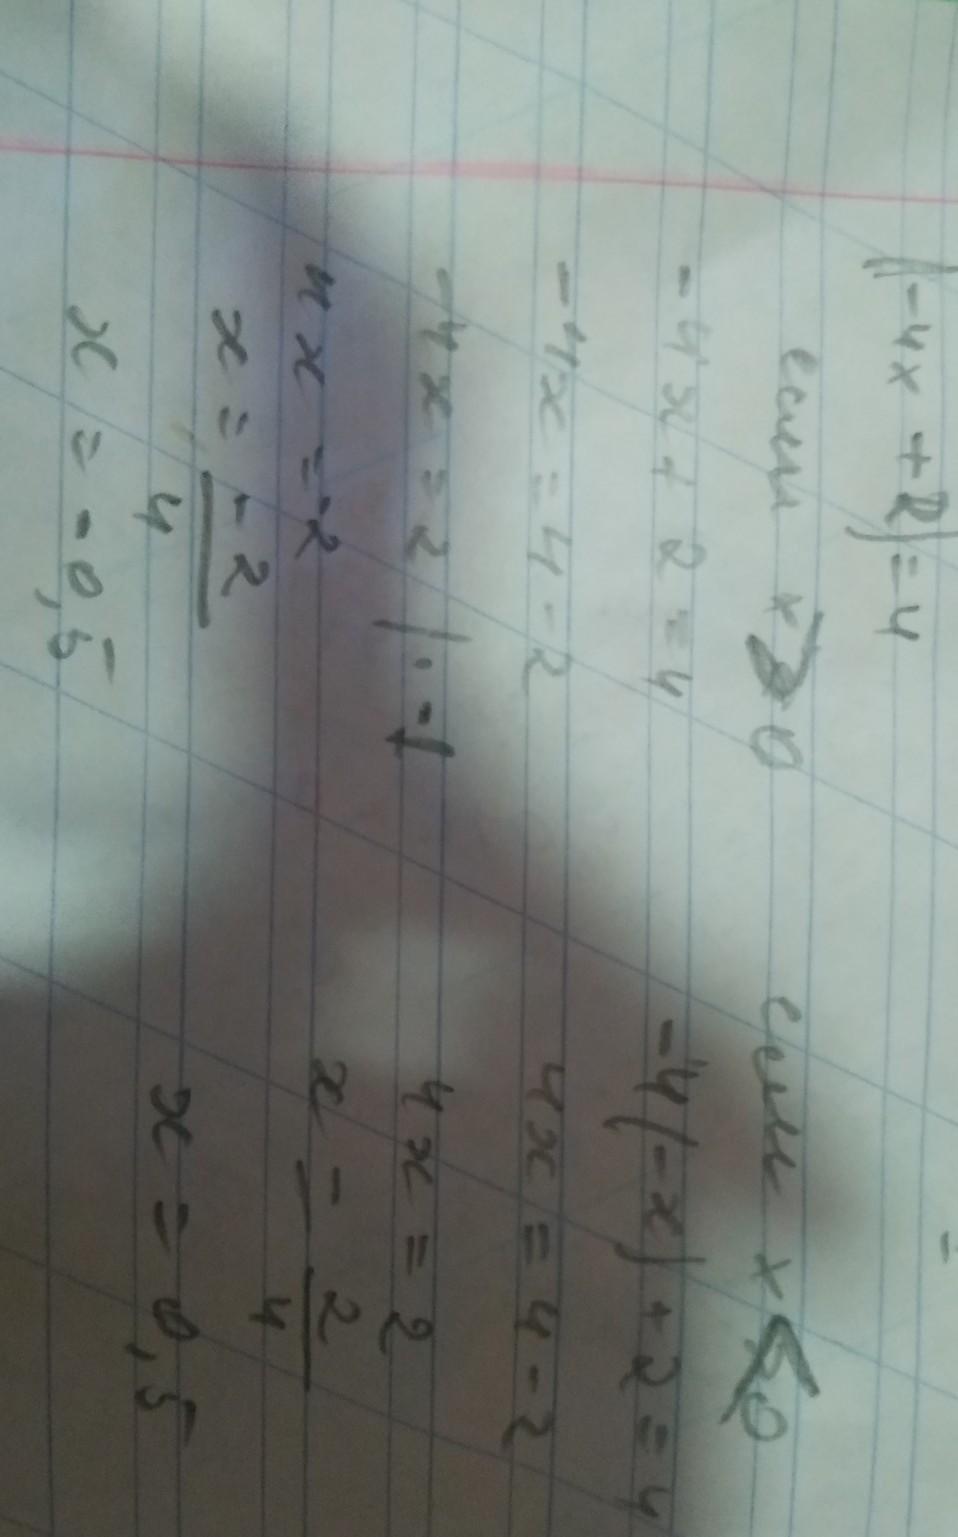 |-4x + 2| = 4
если x > 0
-4x + 2 = 4
-4x = 4 - 2
-4x = 2 | · -1
4x = -2
x = -2/4
x = -0,5
если x < 0
-4(-x) + 2 = 4
4x = 4 - 2
4x = 2
x = 2/4
x = 0,5